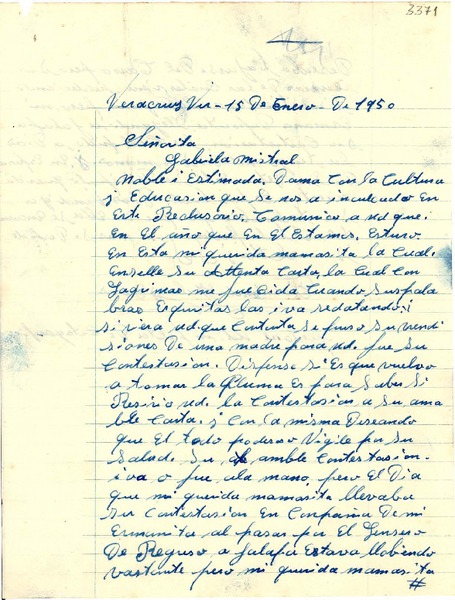 3371
Veracruz Ver - 15 De Enero - De 1950
Señorita
Gabriela Mistral
Noble i Estimada. Dama Con la Cultura
i Educasion que se nos a inculcado En
Este Reclusorio. Comunico a ud que:
En El año que En El Estamos. Estuvo.
En Esta mi querida mamasita la Cual.
Enselle su Attenta Carta, la Cual Con
Lagrimas me fue oida Cuando sus pala
bras Esquitas las iva redatando; i
si viera ud. que Contenta se puso su vendi
siones De una madre para ud. fue su
Contestasion. Dispense si Es que vuelvo
a tomar la Pluma Es para Saber Si
Resivio ud. la Contestasion a Su ama
ble Carta. y Con la misma Deseando
que El todo poderoso Vigile por su
Salud. Su, amble Contestasion-
iva o fue, a la mano, pero El Dia
que mi querida mamasita llevaba
su Contestasion En Conpañia De mi
Ermanita al pasar por El Lensero
De Regreso a Jalapa Estava llobiendo
vastante pero mi querida mamasita
#